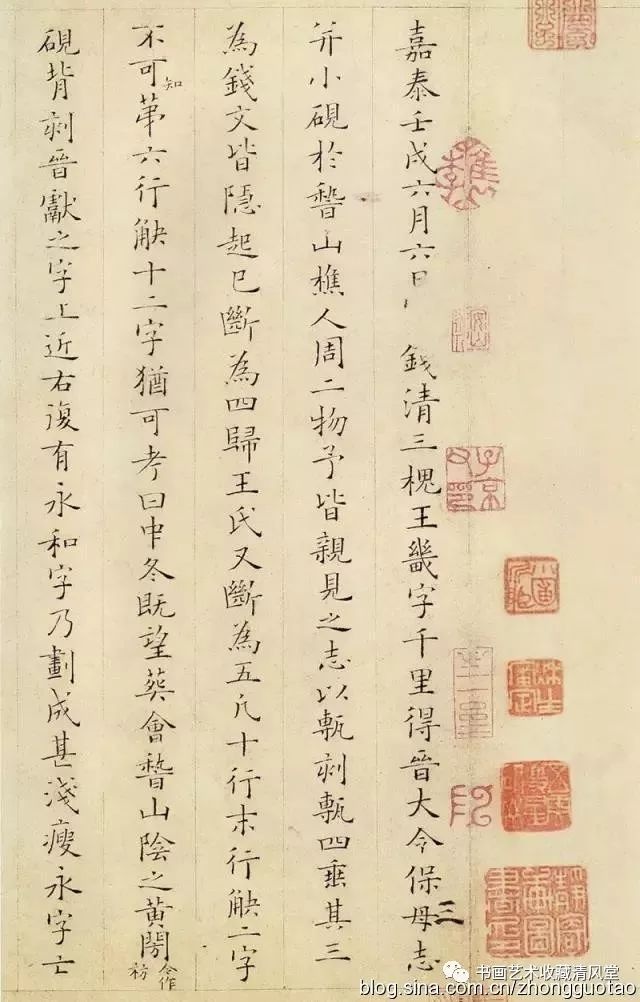 嘉泰壬戌六月六日 錢清三槐王畿字千里得晉大令保母志
三
并小硯於稽山樵人周二物予皆親見之志以甎刻甎四垂其三
為錢文皆隱起已斷為四歸王氏又斷為五凡十行末行缺二字
不可知第六行缺十二字猶可考曰中冬既望葬會稽山陰之黃閍 合作祊
硯背刻晉獻之字上近右復有永和字乃劃成甚淺瘦永字亡
檇李
子京父印
书画艺术收藏清风堂
blog.sina.com.cn/zhongguotao